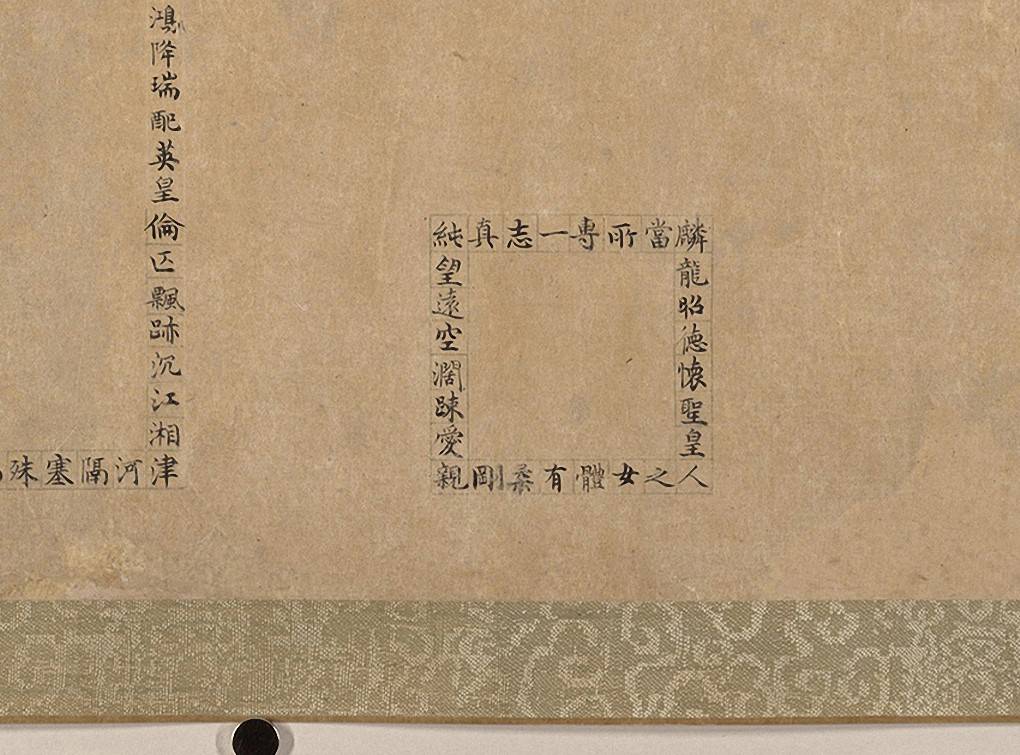 麟龍昭德懷聖皇人
麟當所專一志真純
純望遠空闊踈愛親
人之女體有柔剛親
鴻降瑞配英皇倫匹飄跡沉江湘津
津河隔塞殊